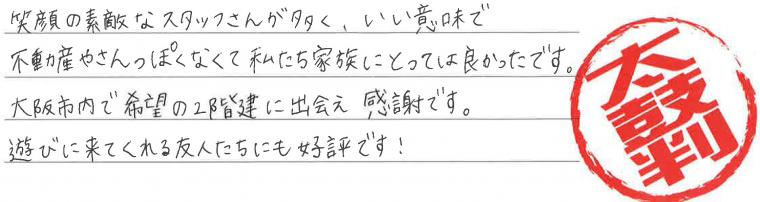 笑顔の素敵なスタッフさんが多く、いい意味で
不動産やさんっぽくなくて私たち家族にとっては良かったです。
大阪市内で希望の2階建に出会え 感謝です。
遊びに来てくれる友人たちにも好評です!
太鼓判